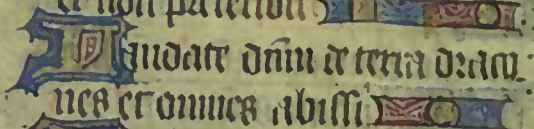 et non preteribit
Laudate dnm de terra draco
nes et omnes abissi